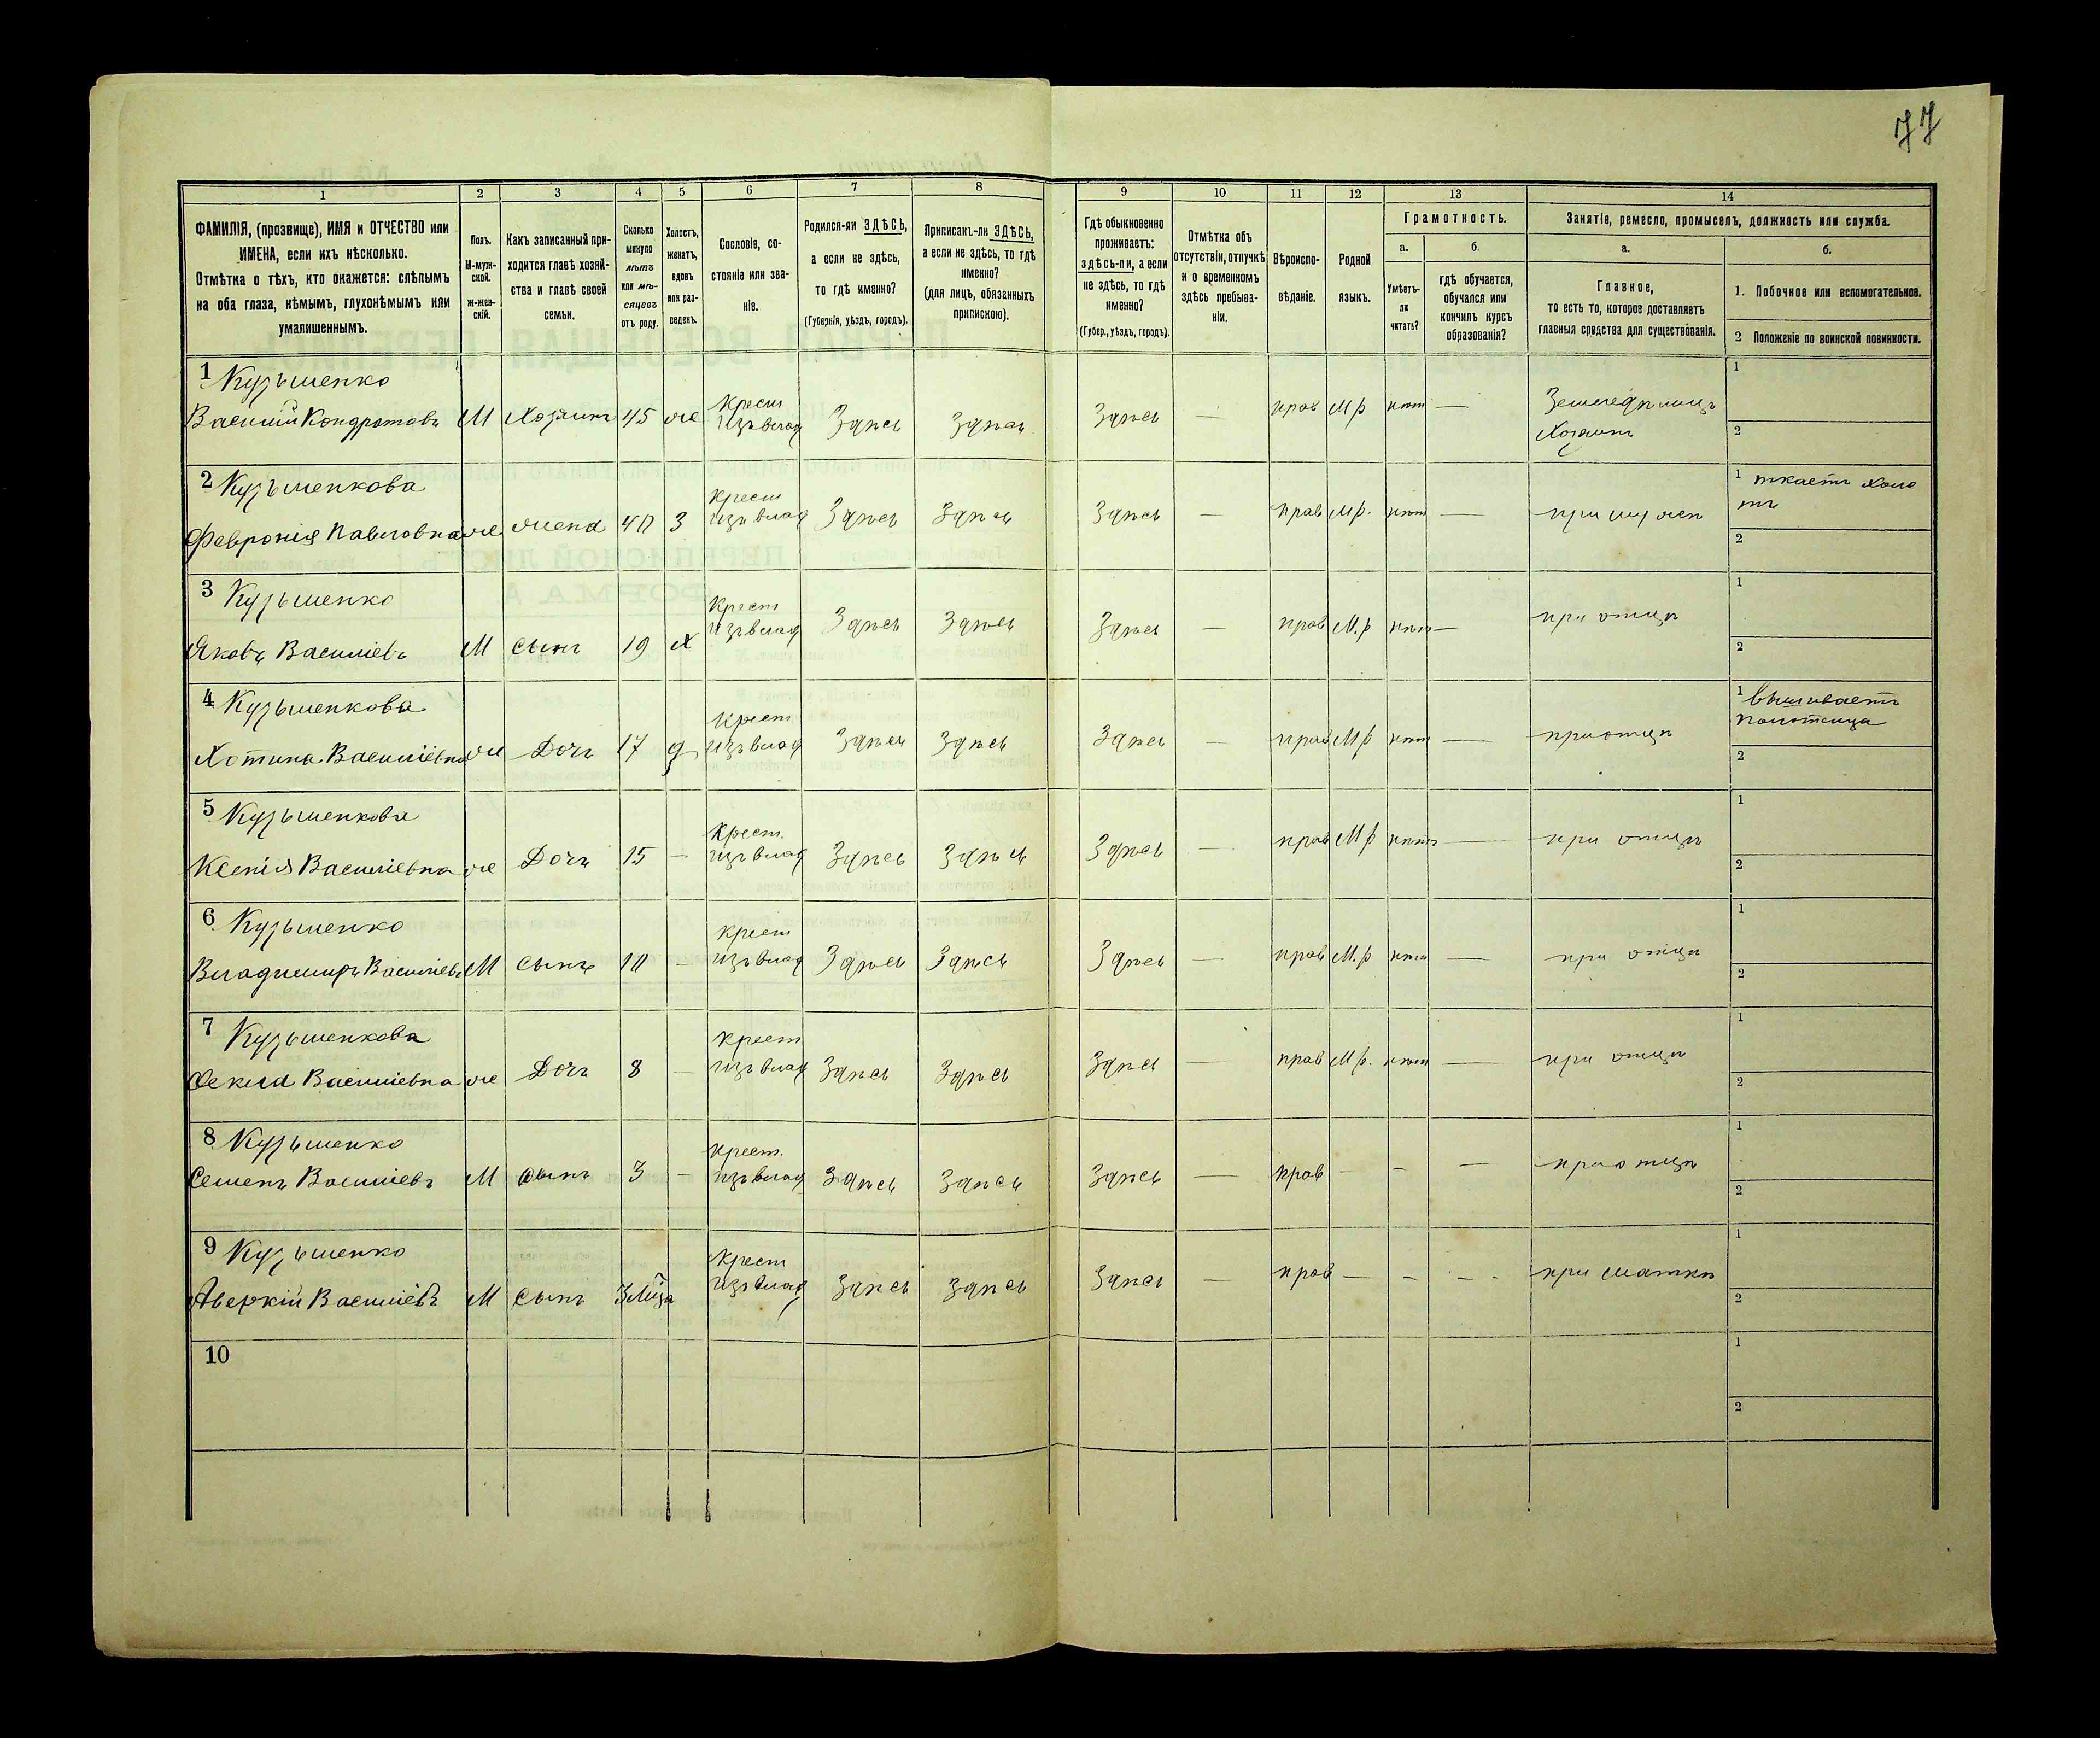 77
1 2 3 4 5 6 7 8 9 10 11 12 13 14
ФАМИЛІЯ, (прозвище), ИМЯ и ОТЧЕСТВО или
ИМЕНА, если ихъ нѣсколько.
Отмѣтка о тѣхъ, кто окажется: слѣпымъ
на оба глаза, нѣмымъ, глухонѣмымъ или
умалишеннымъ.
Полъ.
М-муж-
ской.
ж-жен-
скій.
Какъ записанный при-
ходится главѣ хозяй-
ства и главѣ своей
семьи.
Сколько
минуло
лѣтъ
или мѣ-
сяцевъ
отъ роду.
Холостъ,
женатъ,
вдовъ
или раз-
веденъ.
Сословіе, со-
стояніе или зва-
ніе.
Родился-ли ЗДѢСЬ,
а если не здѣсь,
то гдѣ именно?
(Губернія, уѣздъ, городъ).
Приписанъ-ли ЗДѢСЬ,
а если не здѣсь, то гдѣ
именно?
(для лицъ, обязанныхъ
припискою).
Гдѣ обыкновенно
проживаетъ:
здѣсь-ли, а если
не здѣсь, то гдѣ
именно?
(Губер., уѣздъ, городъ).
Отмѣтка объ
отсутствіи, отлучкѣ
и о временномъ
здѣсь пребыва-
ніи.
Вѣроиспо-
вѣданіе.
Родной
языкъ.
Грамотность.
а.
Умѣетъ-
ли
читать?
б.
гдѣ обучается,
обучался или
кончилъ курсъ
образованія?
Занятіе, ремесло, промыселъ, должность или служба.
а.
Главное,
то есть то, которое доставляетъ
главныя средства для существованія.
б.
1. Побочное или вспомогательное.
2 Положеніе по воинской повинности.
1 Кузьменко
Василій Кондратовъ М Хозяинъ 45 ж Крест изъ влад Здѣсь Здѣсь Здѣсь — прав М р нѣт — Земледѣлецъ Хозяинъ 1 2
2 Кузьменкова
Февронія Павловна ж жена 40 З Крест изъ влад Здѣсь Здѣсь Здѣсь — прав М р. нѣт — при мужѣ 1 ткаетъ холо
тъ 2
3 Кузьменко
Яковъ Василіевъ М Сынъ 19 Х Крест изъ влад Здѣсь Здѣсь Здѣсь — прав М. р нѣт — при отцѣ 1 2
4 Кузьменкова
Хотина Василіевна ж Дочь 17 д Крест изъ влад Здѣсь Здѣсь Здѣсь — прав М р нѣт — при отцѣ 1 вышиваетъ
2
5 Кузьменкова
Ксенія Василіевна ж Дочь 15 — Крест. изъ влад Здѣсь Здѣсь Здѣсь — прав М р нѣтъ — при отцѣ 1 2
6 Кузьменко
Владимиръ Василіевъ М Сынъ 10 — Крест изъ влад Здѣсь Здѣсь Здѣсь — прав М. р нѣт — при отцѣ 1 2
7 Кузьменкова
Фекла Василіевна ж Дочь 8 — Крест изъ влад Здѣсь Здѣсь Здѣсь — прав М р. нѣт — при отцѣ 1 2
8 Кузьменко
Семенъ Василіевъ М Сынъ 3 — Крест. изъ влад Здѣсь Здѣсь Здѣсь — прав — — — при отцѣ 1 2
9 Кузьменко
Аверкій Василіевъ М Сынъ 3 М-ца Крест изъ влад Здѣсь Здѣсь Здѣсь — прав — — — при маткѣ 1 2
10 1 2